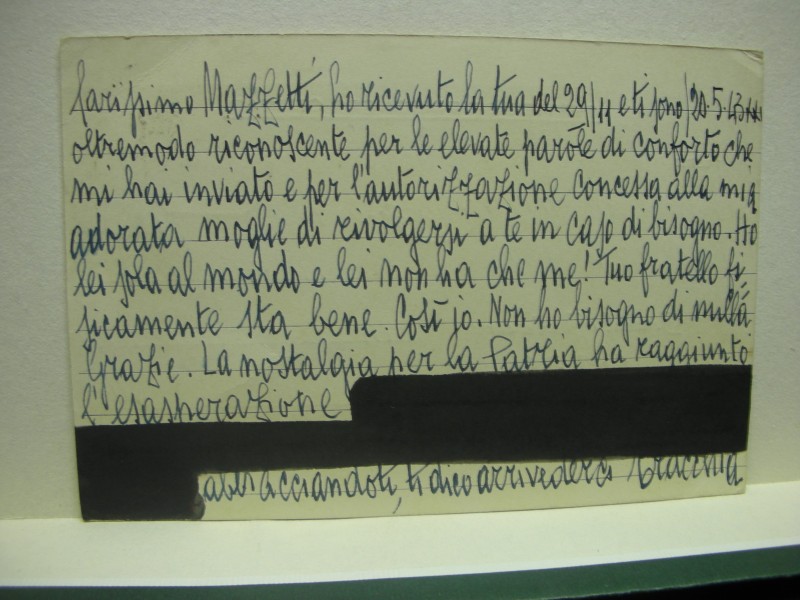 Carissimo Mazzetti, ho ricevuto la tua del 29/11 e ti sono 20.5.43
oltremodo riconoscente per le elevate parole di conforto che
mi hai inviato e per l'autorizzazione concessa alla mia
adorata moglie di rivolgersi a te in caso di bisogno. Ho
lei sola al mondo e lei non ha che me! Tuo fratello fi=
sicamente sta bene. Così io. Non ho bisogno di nulla
Grazie. La nostalgia per la Patria ha raggiunto
l'esasperazione
abbracciandoti, ti dico arrivederci